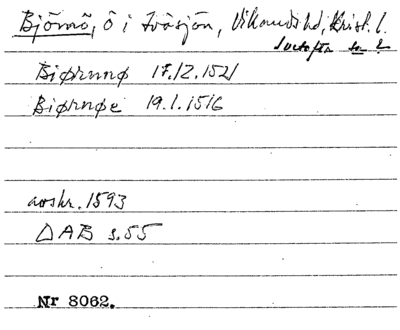 Björnö, ö i Ivösjön, Villands hd, Krist. l.
Ivetofta sn ?
Biørnnø 17.12.1521
Biørnøe 19.1.1516
avskr. 1593
DAB s.55
Nr 8062.